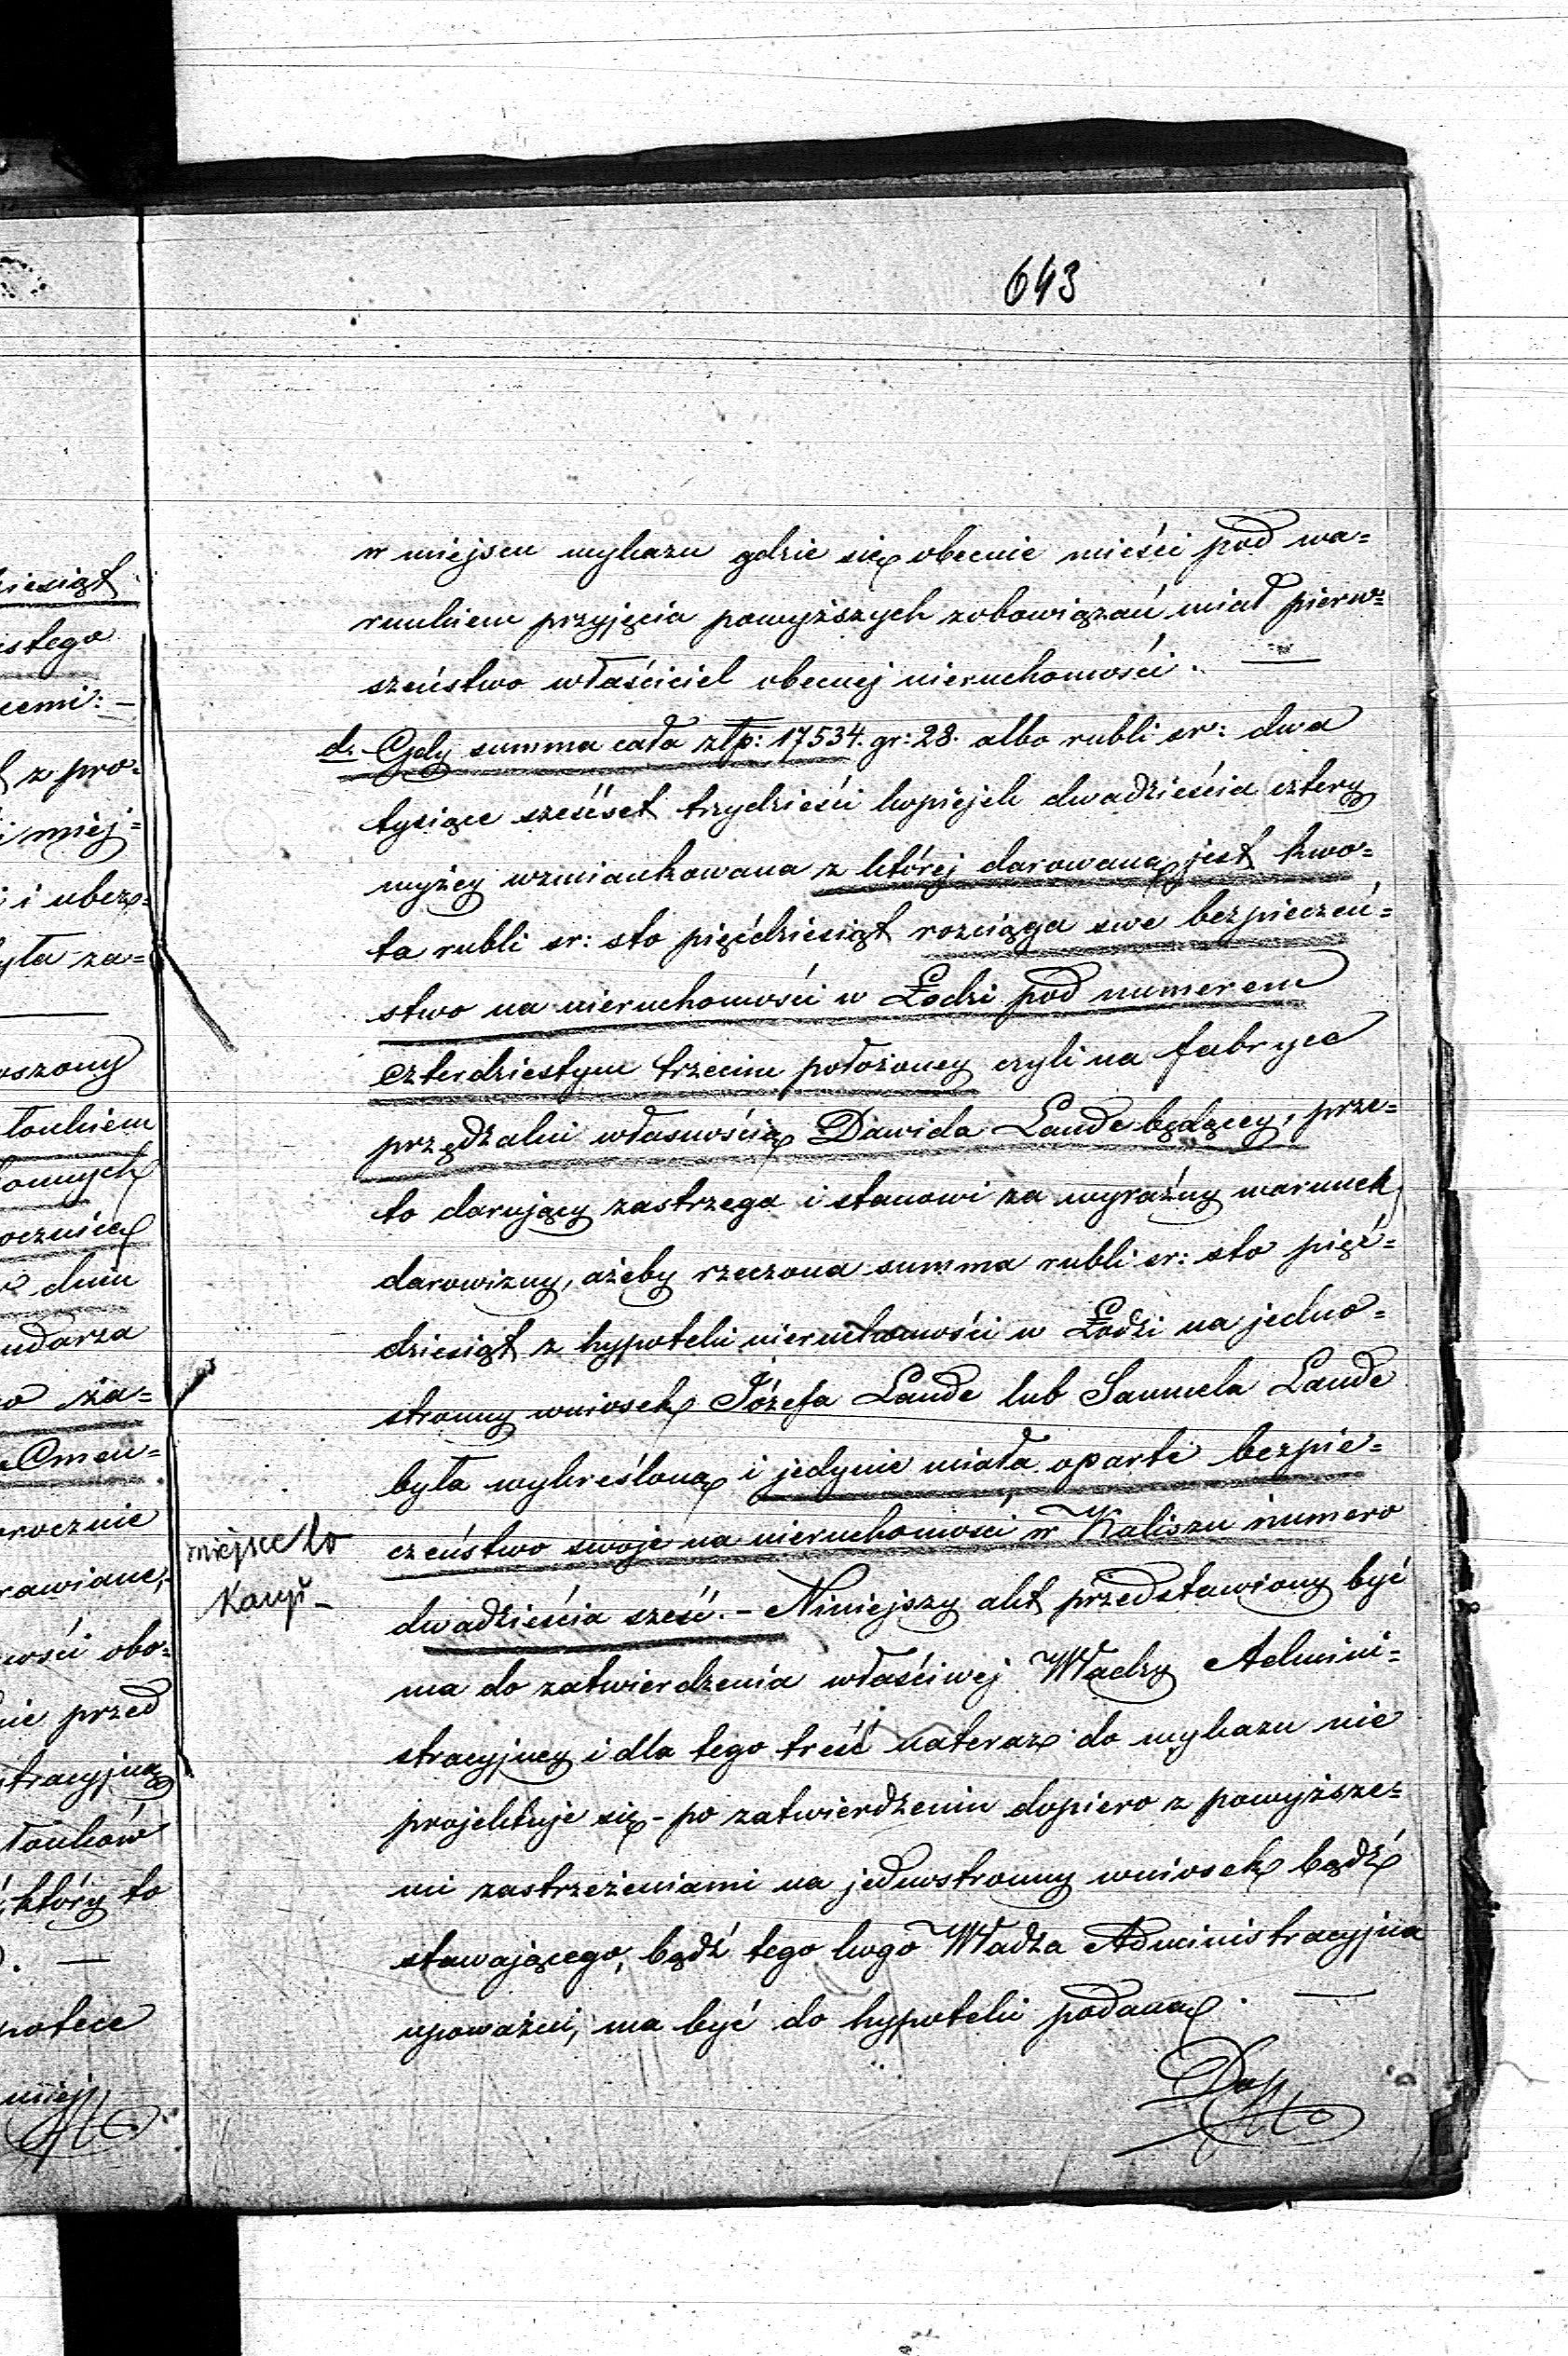 643
w miejscu wykazu gdzie się obecnie mieści pod wa=
runkiem przyjęcia powyższych zobowiązań miał pierw=
szeństwo właściciel obecnej nieruchomości. —
d. Gdy summa cała złp: 17534. gr: 28. albo rubli sr: dwa
tysiące sześćset trzydzieści kopiejek dwadzieścia cztery
wyżey wzmiankowana z której darowaną jest kwo=
ta rubli sr: sto pięćdziesiąt rozciąga swe bezpieczeń=
stwo na nieruchomości w Łodzi pod numerem
czterdziestym trzecim położoney czyli na fabryce
przędzalni własnością Dawida Lande będącey, prze=
to darujący zastrzega i stanowi za wyraźny warunek
darowizny, ażeby rzeczona summa rubli sr: sto pięć=
dziesiąt z hypoteki nieruchomości w Łodzi na jedno=
stronny wniosek Józefa Lande lub Samuela Lande
była wykreśloną i jedynie miała oparte bezpie=
czeństwo swoje na nieruchomości w Kaliszu numero
dwadzieścia sześć. – Niniejszy akt przedstawiony być
ma do zatwierdzenia właściwej Władzy Admini=
stracyjney i dla tego treść nateraz do wykazu nie
projektuje się – po zatwierdzeniu dopiero z powyższe=
mi zastrzeżeniami na jednostronny wniosek bądź
stawającego, bądź tego kogo Władza Administracyjna
upoważni, ma być do hypoteki podaną. —
miejsce to
dziesiąt
istego
cemi: —
z pro=
i miej=
i ubezp=
yła za=
oszony
łonkiem
omych
w dniu
udarza
o za=
Cmen=
rocznie
rawiane,
wości obo=
nie przed
stracyjną
łonków
który to
potece